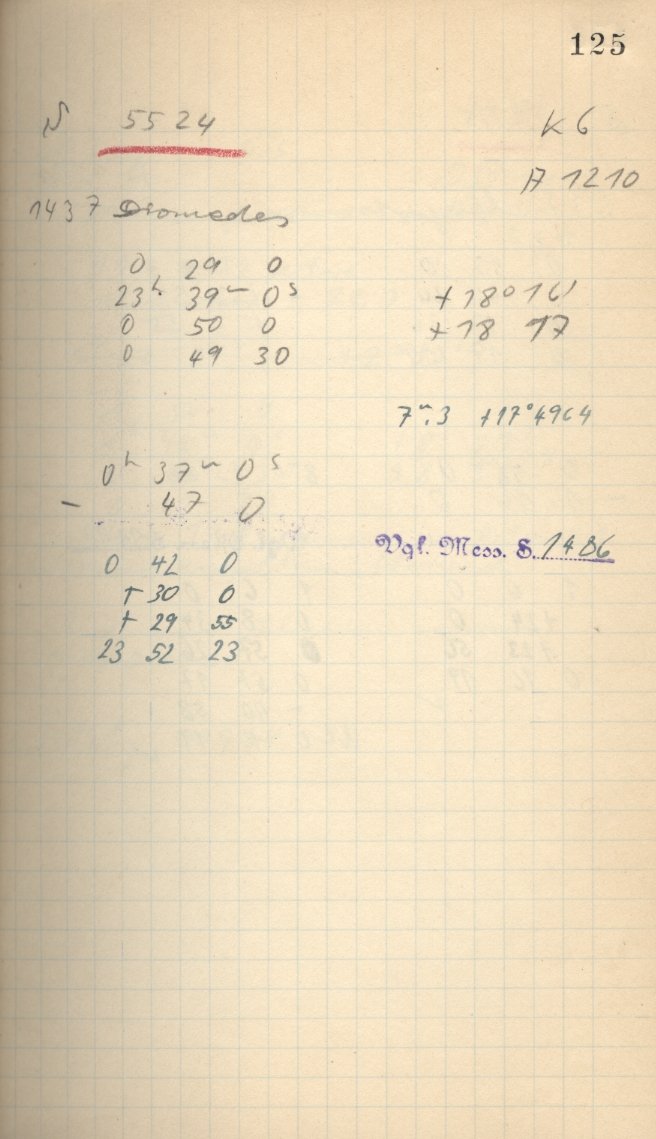 125
N 5524
K 6
A 1210
1437 Diomedes
0 29 0
23h 39m 0s +18° 16'
0 50 0 +18 17
0 49 30
7m.3 +17°4964
0h 37m 0s
- 47 0
Vgl. Mess. S. 1486
0 42 0
+ 30 0
+ 29 55
23 52 23